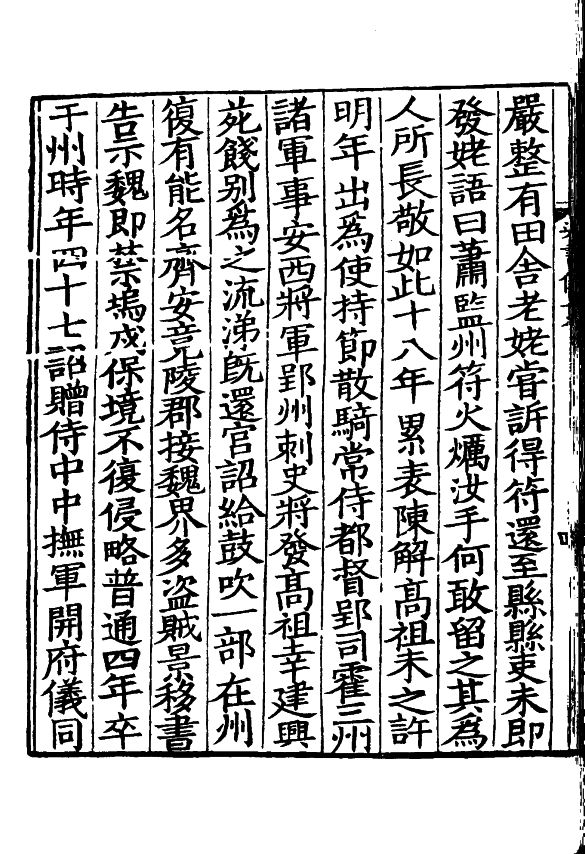 嚴整有田舍老姥嘗訴得符還至縣縣吏未即
發姥語曰蕭監州符火爁汝手何敢留之其爲
人所長敬如此十八年累表陳解高祖未之許
明年出爲使持節散騎常侍都督郢司霍三州
諸軍事安西將軍郢州刺史將發高祖幸建興
苑餞别爲之流涕旣還宫詔給鼓吹一部在州
復有能名齊安竟陵郡接魏界多盜賊景移書
告示魏即焚塢戍保境不復侵略普通四年卒
于州時年四十七詔贈侍中中撫軍開府儀同